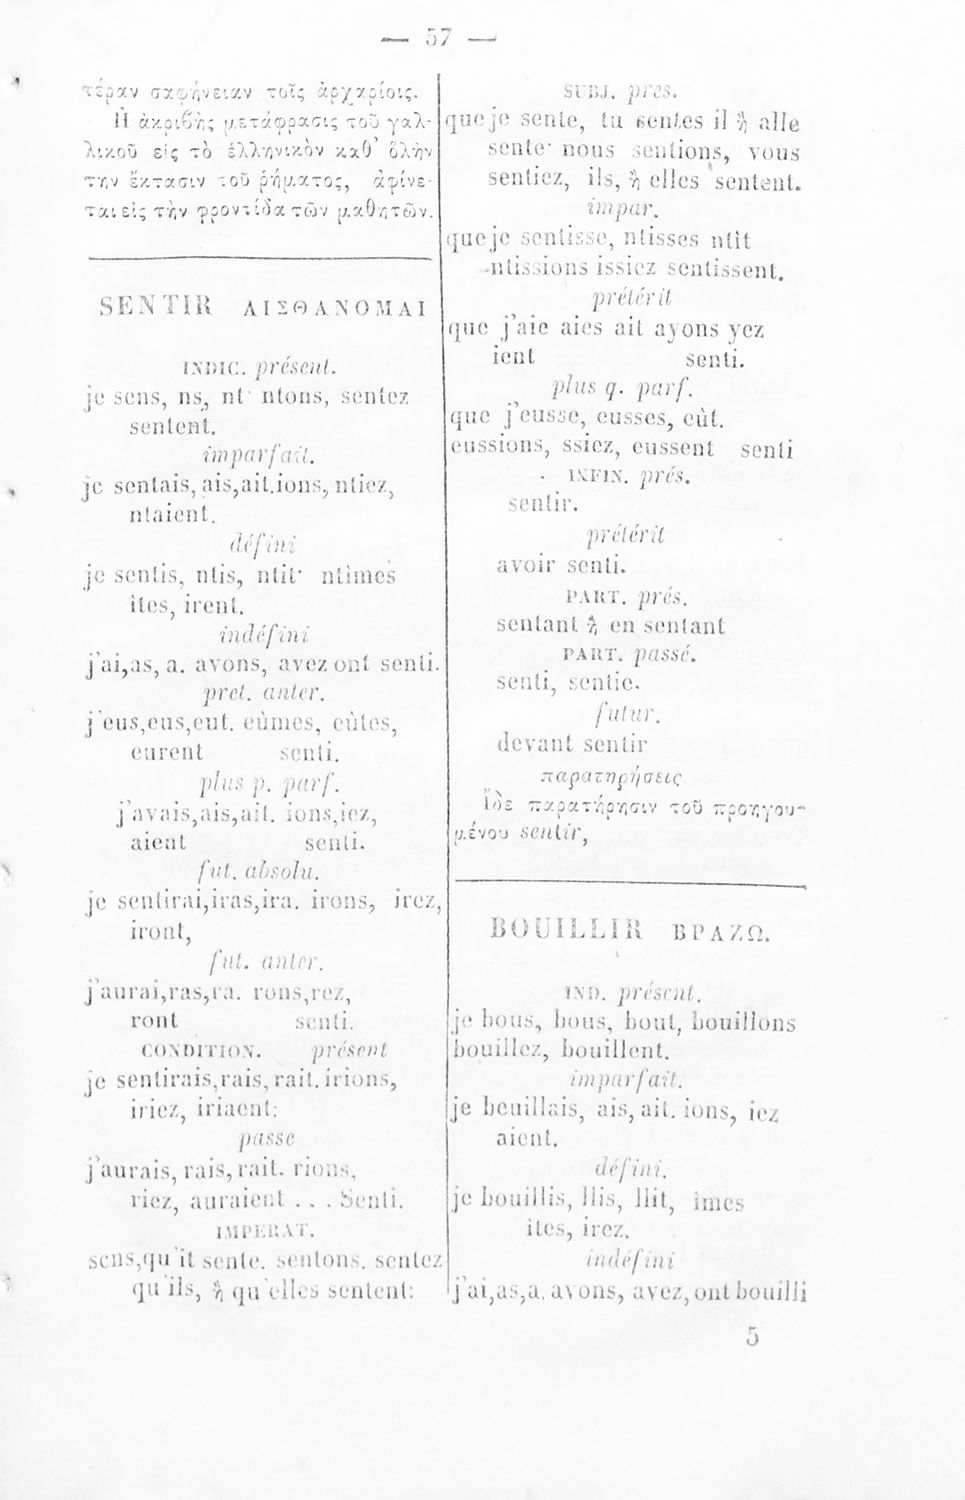 — 57 —
τέραν σαφήνειαν τοῖς ἀρχαρίοις.
Ἡ ἀκριβὴς μετάφρασις τοῦ γαλ-
λικοῦ εἰς τὸ ἑλληνικὸν καθ' ὅλὴν
τὴν ἔκτασιν τοῦ ῥήματος, ἀφίνε-
ται εἰς τὴν φροντίδα τῶν μαθητῶν.
SENTIR ΑΙΣΘΑΝΟΜΑΙ
INDIC. présent.
je sens, ns, nt· ntons, sentez
sentent.
imparfait.
je sentais, ais,ait.ions, ntiez,
ntaient.
défini
je sentis, ntis, ntit· ntîmes
ites, irent.
indéfini
j'ai,as, a. avons, avez ont senti.
pret. anter.
j'eus,eus,eut. eûmes, eûtes,
eurent senti.
plus p. parf.
j'avais,ais,ait. ions,iez,
aient senti.
fut. absolu.
je sentirai,iras,ira. irons, irez,
iront,
fut. anter.
j'aurai,ras,ra. rons,rez,
ront senti.
CONDITION. présent
je sentirais,rais, rait. irions,
iriez, iriaent:
passe
j'aurais, rais, rait. rions,
riez, auraient . . . Senti.
IMPERAT.
sens,qu'it sente. sentons. sentez
qu'ils, ἢ qu'elles sentent:
SUBJ. pres.
que je sente, tu sentes il ἢ alle
sente· nous sentions, vous
sentiez, ils, ἢ elles sentent.
impar.
que je sentisse, ntisses ntît
-ntissions issiez sentissent.
prétérit
que j'aie aies ait ayons yez
ient senti.
plus q. parf.
que j'eusse, eusses, eût.
eussions, ssiez, eussent senti
INFIN. prés.
sentir.
prétérit
avoir senti.
PART. prés.
sentant ἢ en sentant
PART. passé.
senti, sentie.
futur.
devant sentir
παρατηρήσεις
Ἴδε παρατήρησιν τοῦ προηγου-
μένου sentir,
BOUILLIR ΒΡΑΖΩ.
IND. présent.
je bous, bous, bout, bouillons
bouillez, bouillent.
imparfait.
je beuillais, ais, ait. ions, iez
aient.
défini.
je bouillis, llis, llit, îmes
ites, irez.
indéfini
j'ai,as,a. avons, avez, ont bouilli
5